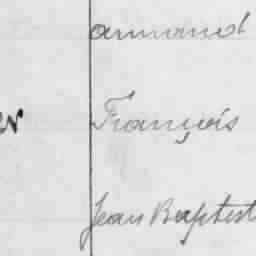 armand
François
Jean Baptist